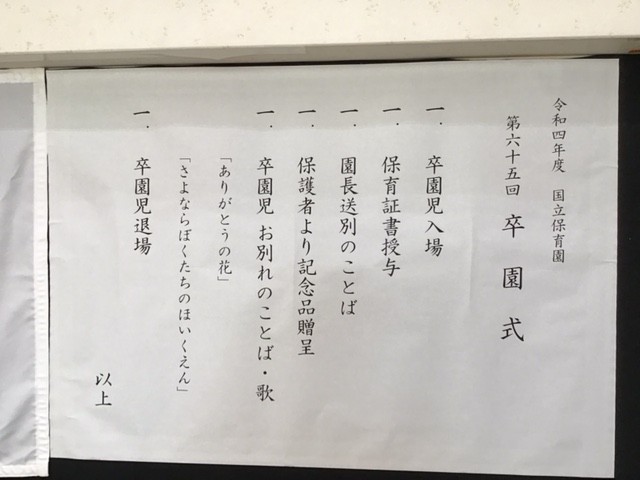 令和四年度 国立保育園
第六十五回 卒園式
一. 卒園児入場
一. 保育証書授与
一. 園長送別のことば
一. 保護者より記念品贈呈
一. 卒園児 お別れのことば・歌
「ありがとうの花」
「さよならぼくたちのほいくえん」
一. 卒園児退場
以上